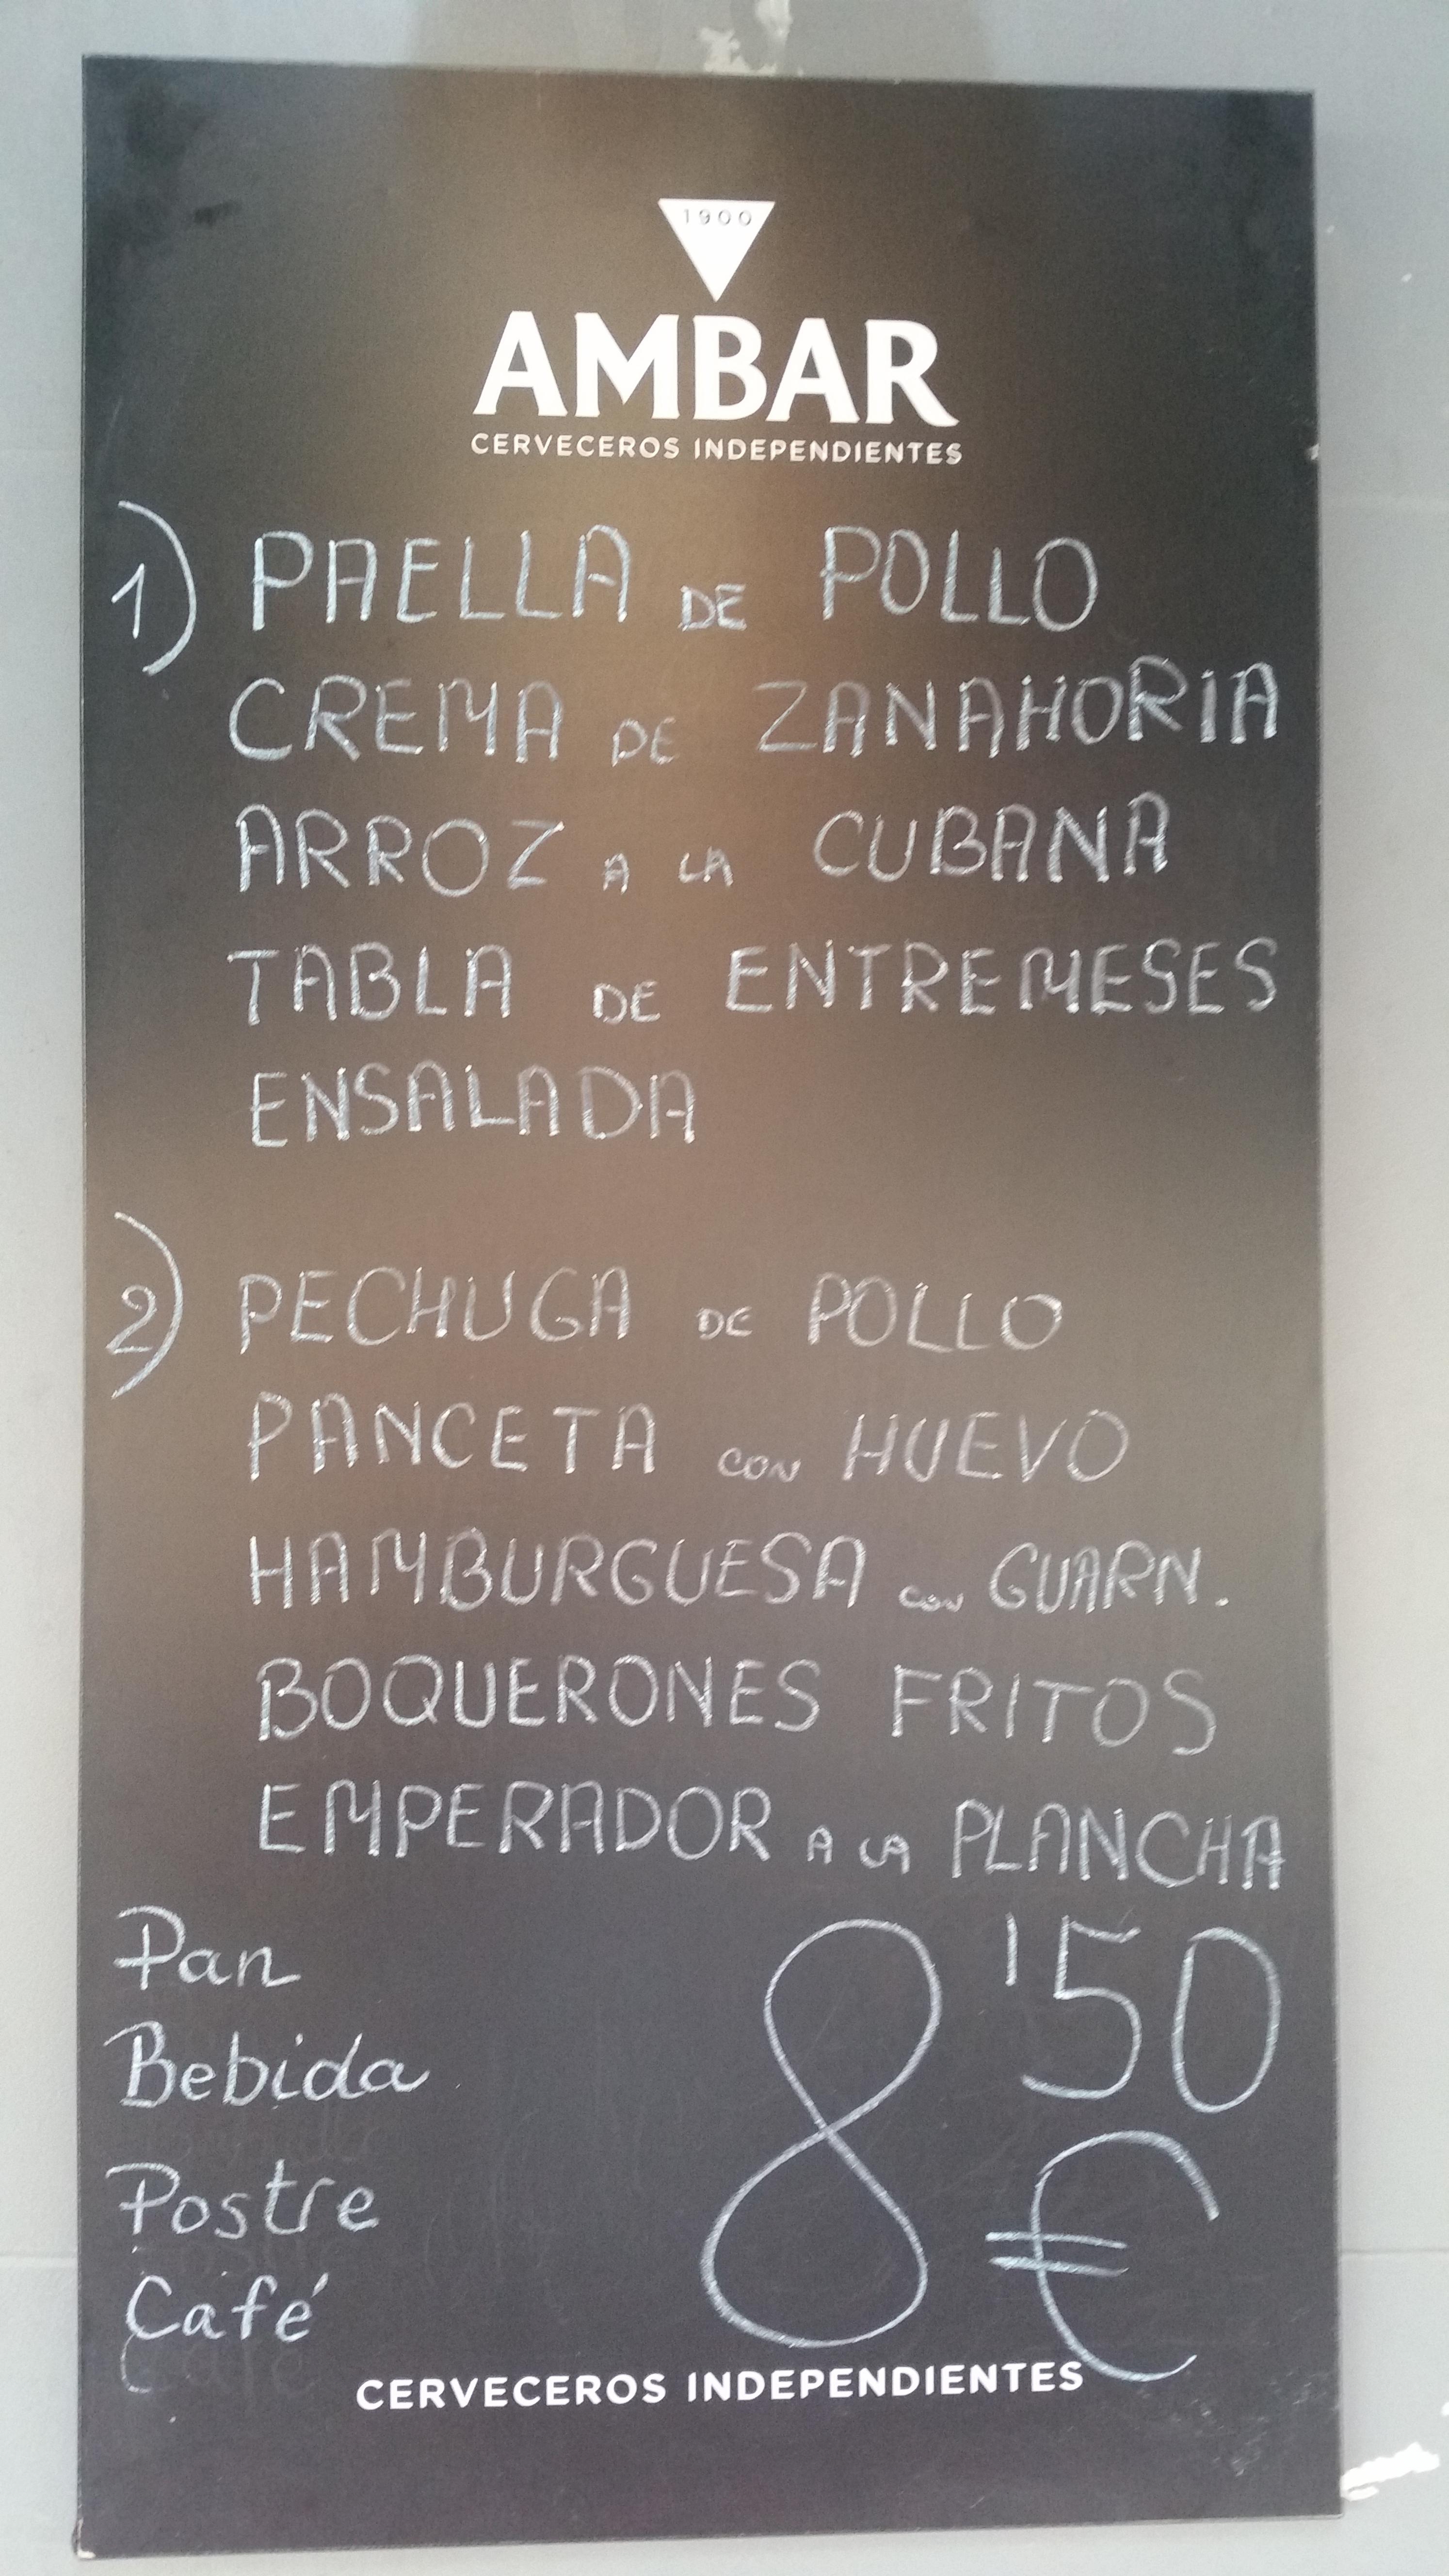 1900
AMBAR
CERVECEROS INDEPENDIENTES
1) PAELLA DE POLLO
CREMA DE ZANAHORIA
ARROZ A LA CUBANA
TABLA DE ENTREMESES
ENSALADA
2) PECHUGA DE POLLO
PANCETA CON HUEVO
HAMBURGUESA CON GUARN.
BOQUERONES FRITOS
EMPERADOR A LA PLANCHA
Pan
Bebida
Postre
Café
8'50
€
CERVECEROS INDEPENDIENTES